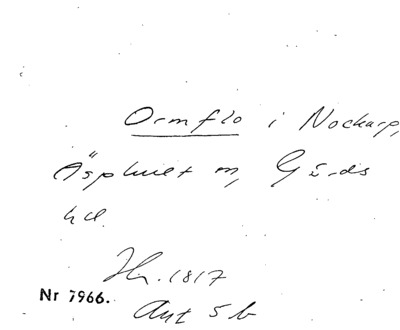 Ormflo i Nockarp,
Äsphult sn, Gärds
hd.
Hr. 1817
Nr 7966.
Avt 5 b